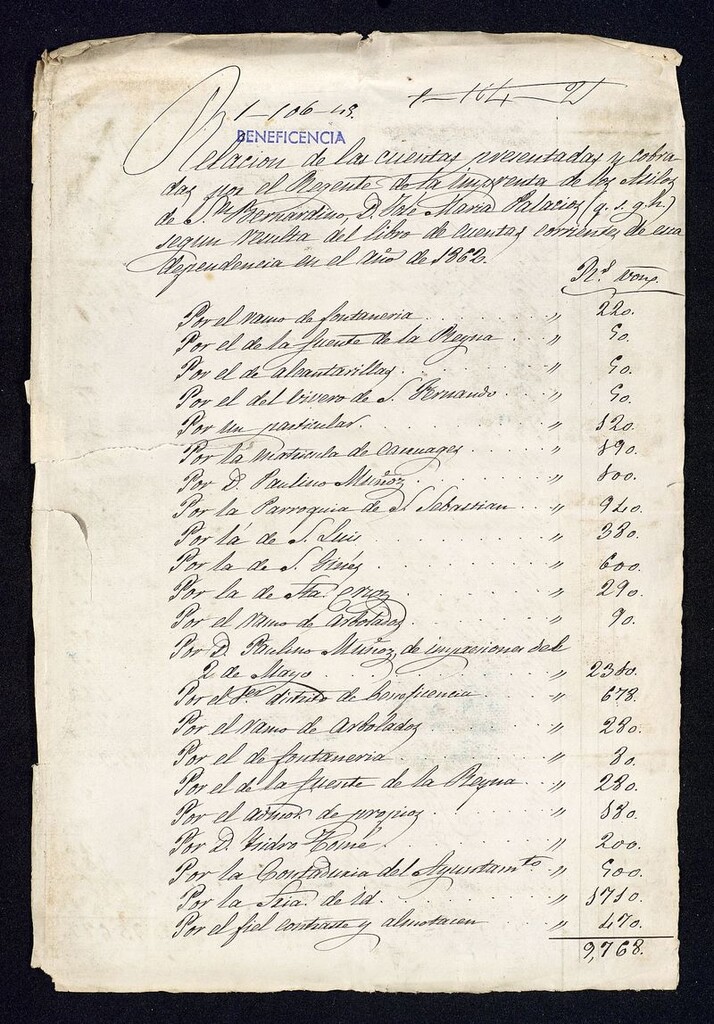 1-106-43.
BENEFICENCIA
Relacion de las cuentas presentadas y cobra
das por el Regente de la Imprenta de los Asilos
de Sn. Bernardino, D. José Maria Palacios (q. s. g. h.)
segun resulta del libro de cuentas corrientes de esa
dependencia en el año de 1862.
Rs. von.
Por el ramo de fontaneria . . . " 220.
Por el de la fuente de la Reyna . . . " 50.
Por el de alcantarillas . . . " 50.
Por el del vivero de S. Fernando . . . " 50.
Por un particular . . . " 120.
Por la matricula de carruages . . . " 190.
Por D. Paulino Muñoz . . . " 100.
Por la Parroquia de S. Sebastian . . . " 940.
Por la de S. Luis . . . " 380.
Por la de S. Ginés . . . " 600.
Por la de Sta. Cruz . . . " 290.
Por el ramo de Arbolados . . . " 90.
Por D. Paulino Muñoz, de impresiones del
2 de Mayo . . . "
Por el 1er. distrito de beneficencia . . . " 678.
Por el ramo de Arbolados . . . " 280.
Por el de fontaneria . . . " 80.
Por el de la fuente de la Reyna . . . " 280.
Por el admor. de propios . . . " 180.
Por D. Ysidro Tomé . . . " 200.
Por la Contaduria del Ayuntamto . . . " 500.
Por la Sria. de id. . . . "
Por el fiel contraste y almotacen . . . " 470.
9,768.